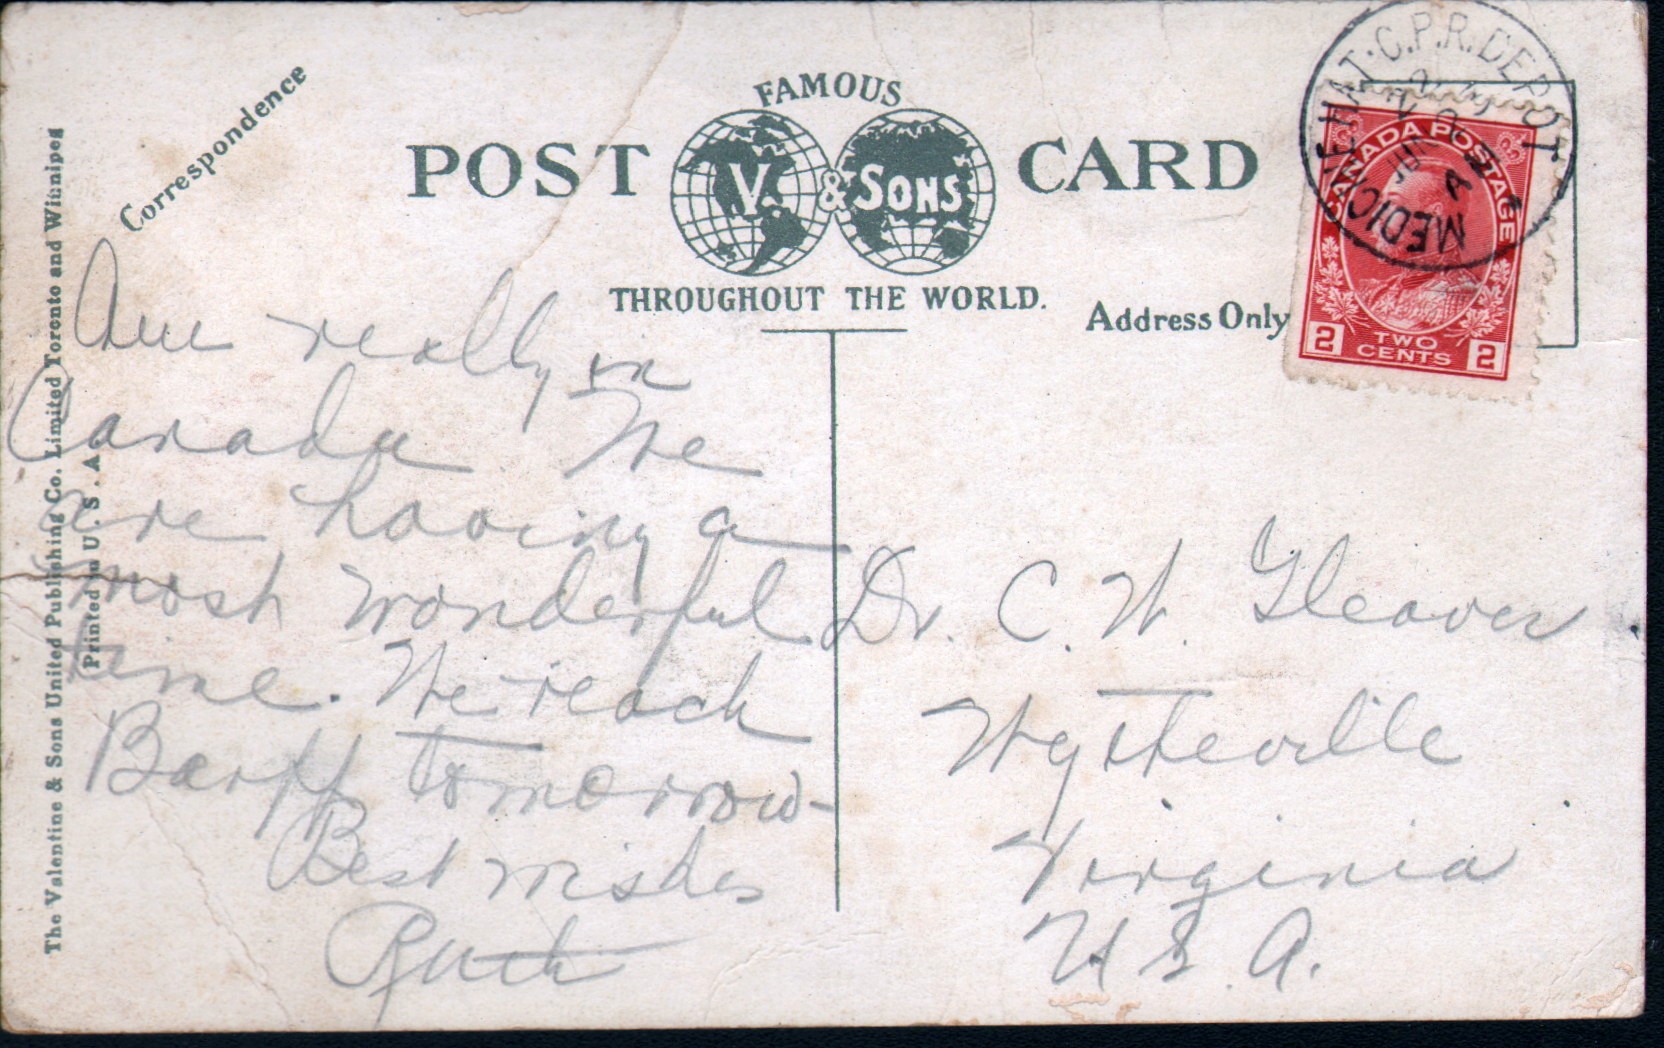 Correspondence
FAMOUS
POST V. & SONS CARD
THROUGHOUT THE WORLD.
Address Only
The Valentine & Sons United Publishing Co. Limited Toronto and Winnipeg
Printed in U.S.A.
MEDICINE HAT · C.P.R. DEPOT
JUN
CANADA POSTAGE
2 TWO CENTS 2
Am really in
Canada We
are having a
most wonderful
time. We reach
Banff tomorrow-
Best wishes
Ruth
Dr. C. W. Gleaves
Wytheville
Virginia
U S A.